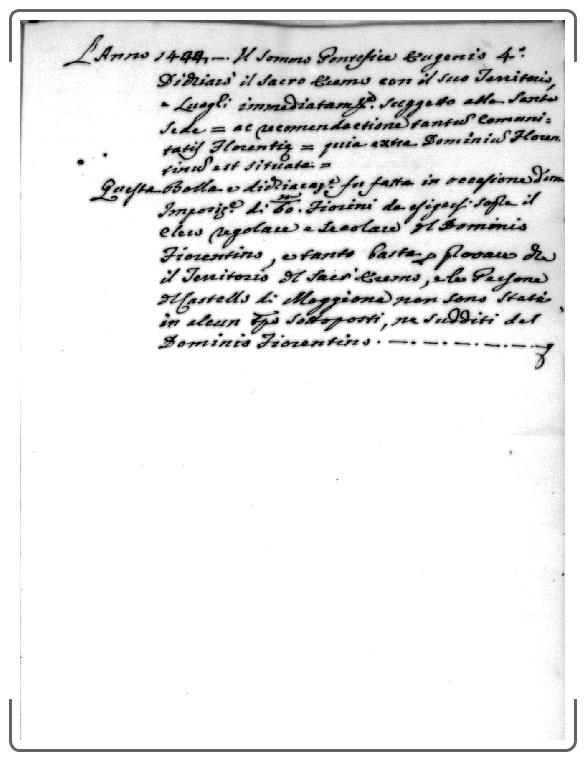 L'Anno 1444. — Il Sommo Pontefice Eugenio 4°.
Dichiarò il Sacro Eremo con il suo Territorio,
e Luoghi immediatam.te suggetto alla Santa
Sede = ac recomendatione tantum Comuni-
tatis Florentiæ = quia extra Dominiũ Floren-
tinũ est situata =
Questa Bolla e dichiaraz.e fu fatta in occasione d'una
Impoiz.e di Fiorini da esigersi sopra il
Clero regolare e Secolare del Dominio
Fiorentino, e tanto basta p provare che
il Territorio del Sacro Eremo, e le Persone
del Castello di Moggiona non sono stati
in alcun tpo sottoposti, ne sudditi del
Dominio Fiorentino. — . — . — . —